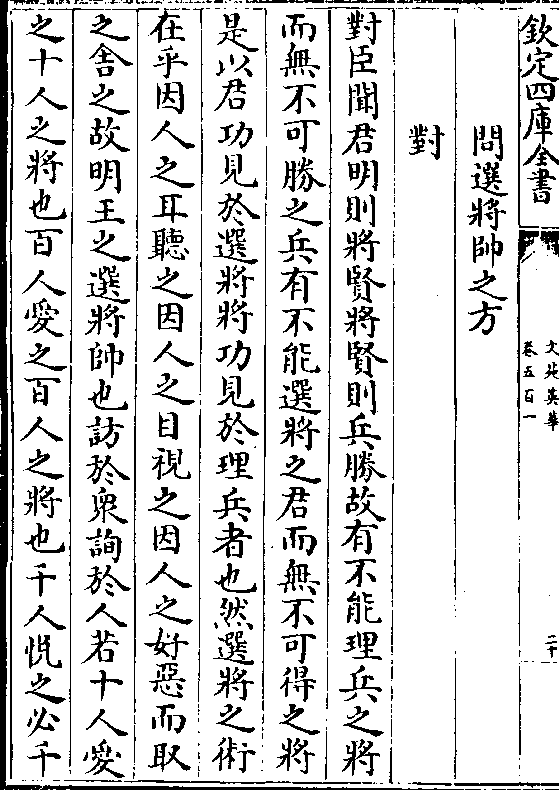 欽定四庫全書
文苑英華
卷五百一
二十
問選將帥之方
對
對臣聞君明則將賢將賢則兵勝故有不能理兵之將
而無不可勝之兵有不能選將之君而無不可得之將
是以君功見於選將將功見於理兵者也然選將之術
在乎因人之耳聽之因人之目視之因人之好惡而取
之舍之故明王之選將帥也訪於衆詢於人若十人愛
之十人之將也百人愛之百人之將也千人悅之必千